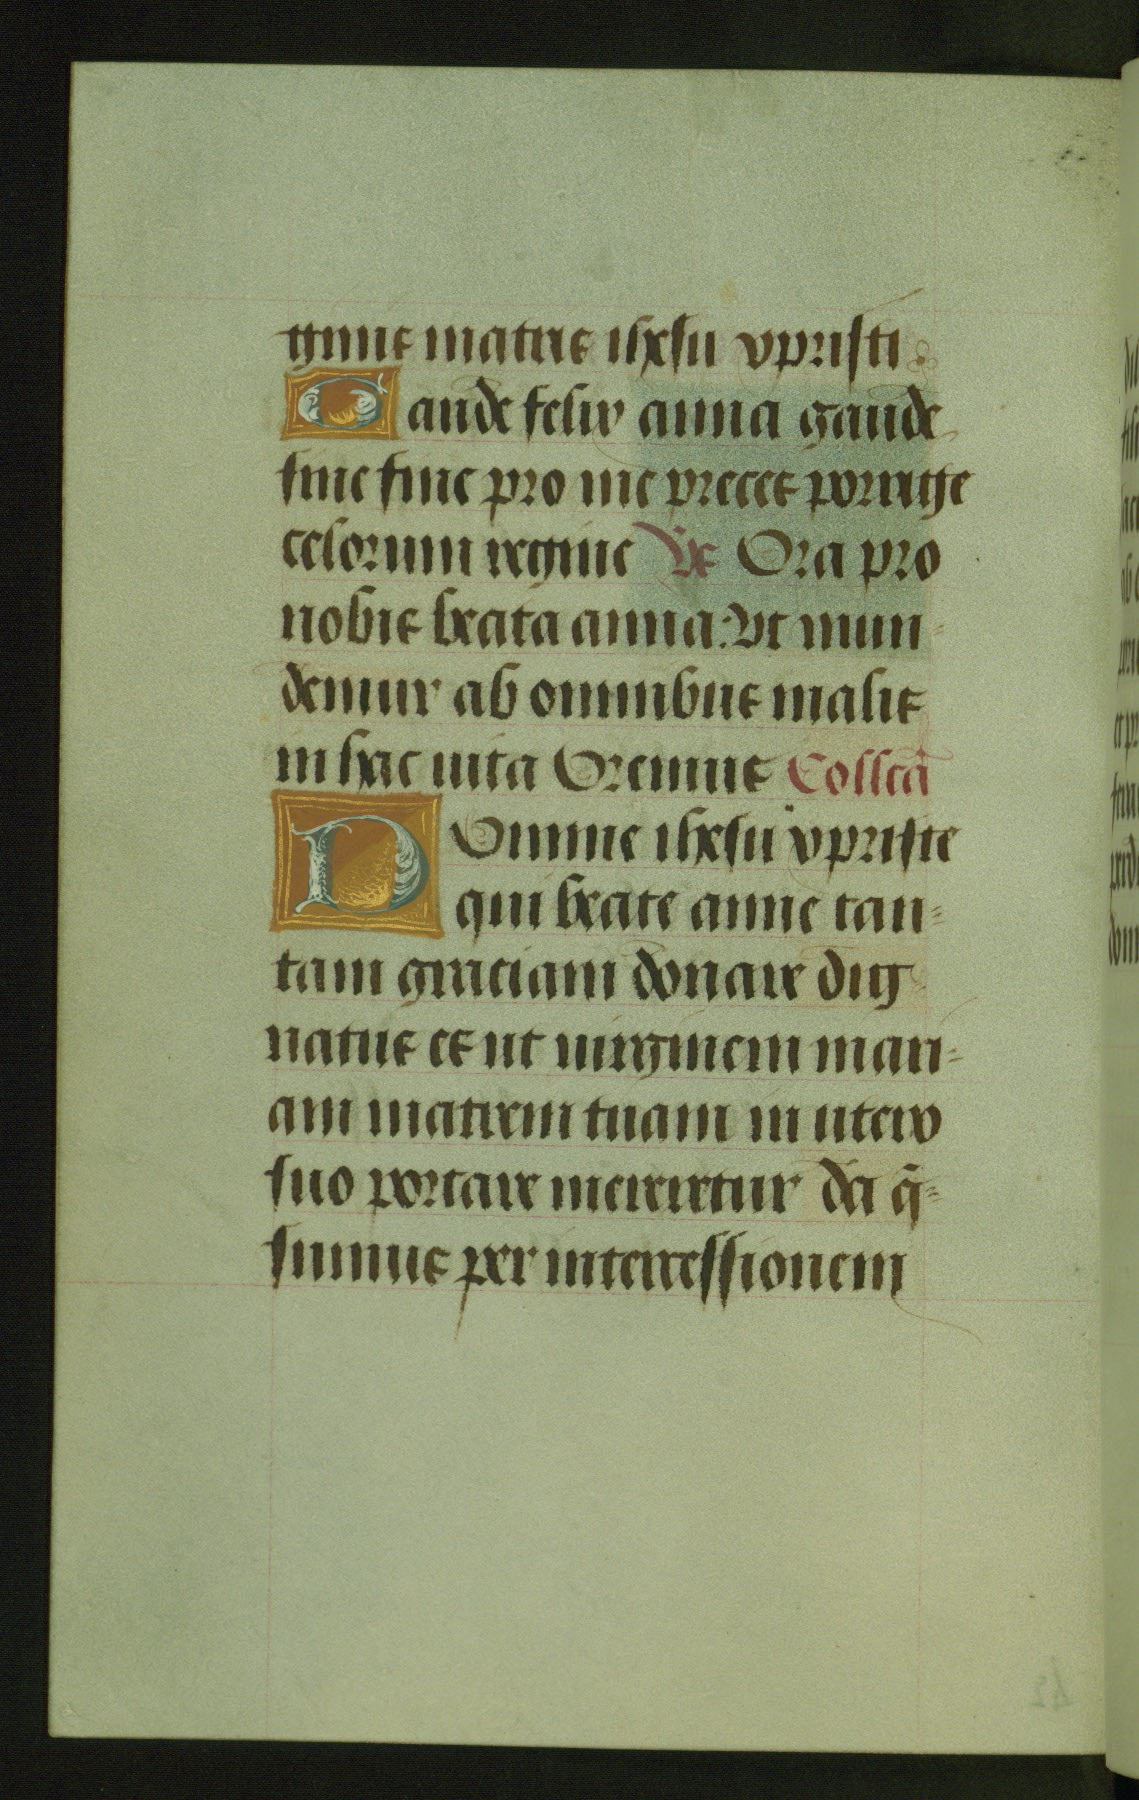 ginis matris ihesu xpristi
Gaude felix anna gaude
sine fine pro me preces porrige
celorum regine Vs Ora pro
nobis beata anna: Vt mun=
demur ab omnibus malis
in hac uita Oremus Collcā
Domine ihesu xpriste
qui beate anne tan=
tam graciam donare dig
natus es ut uirginem mari=
am matrem tuam in utero
suo portare mereretur da q̄=
sumus per intercessionem